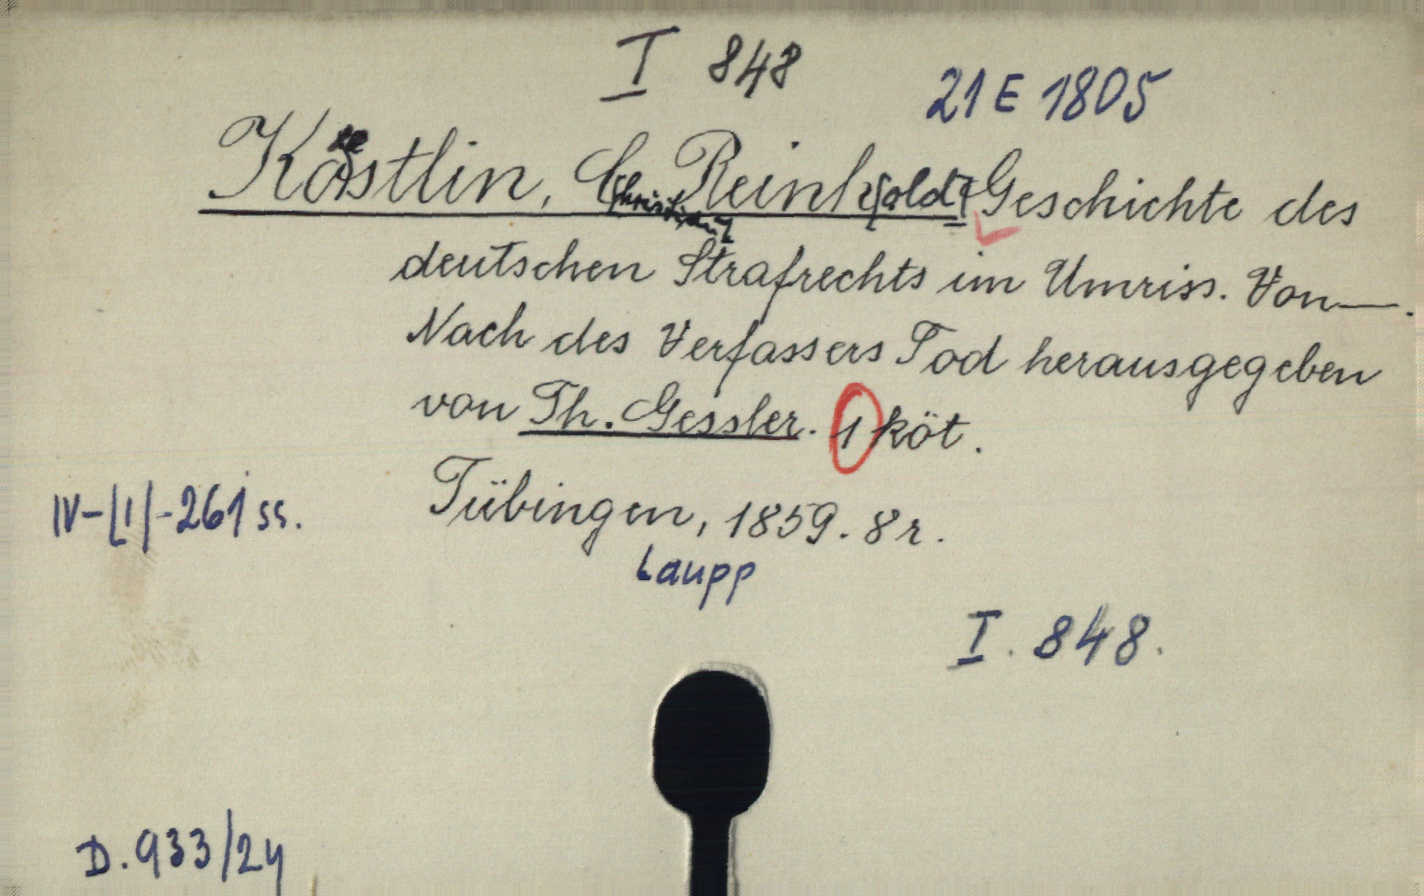 I 848
21 E 1805
Köstlin, C[hristian] Reinh[old] Geschichte des
deutschen Strafrechts im Umriss. Von —.
Nach des Verfassers Tod herausgegeben
von Th. Gessler. 1 köt.
IV-[I]-261 ss.
Tübingen, 1859. 8r.
Laupp
I. 848.
D. 933/24